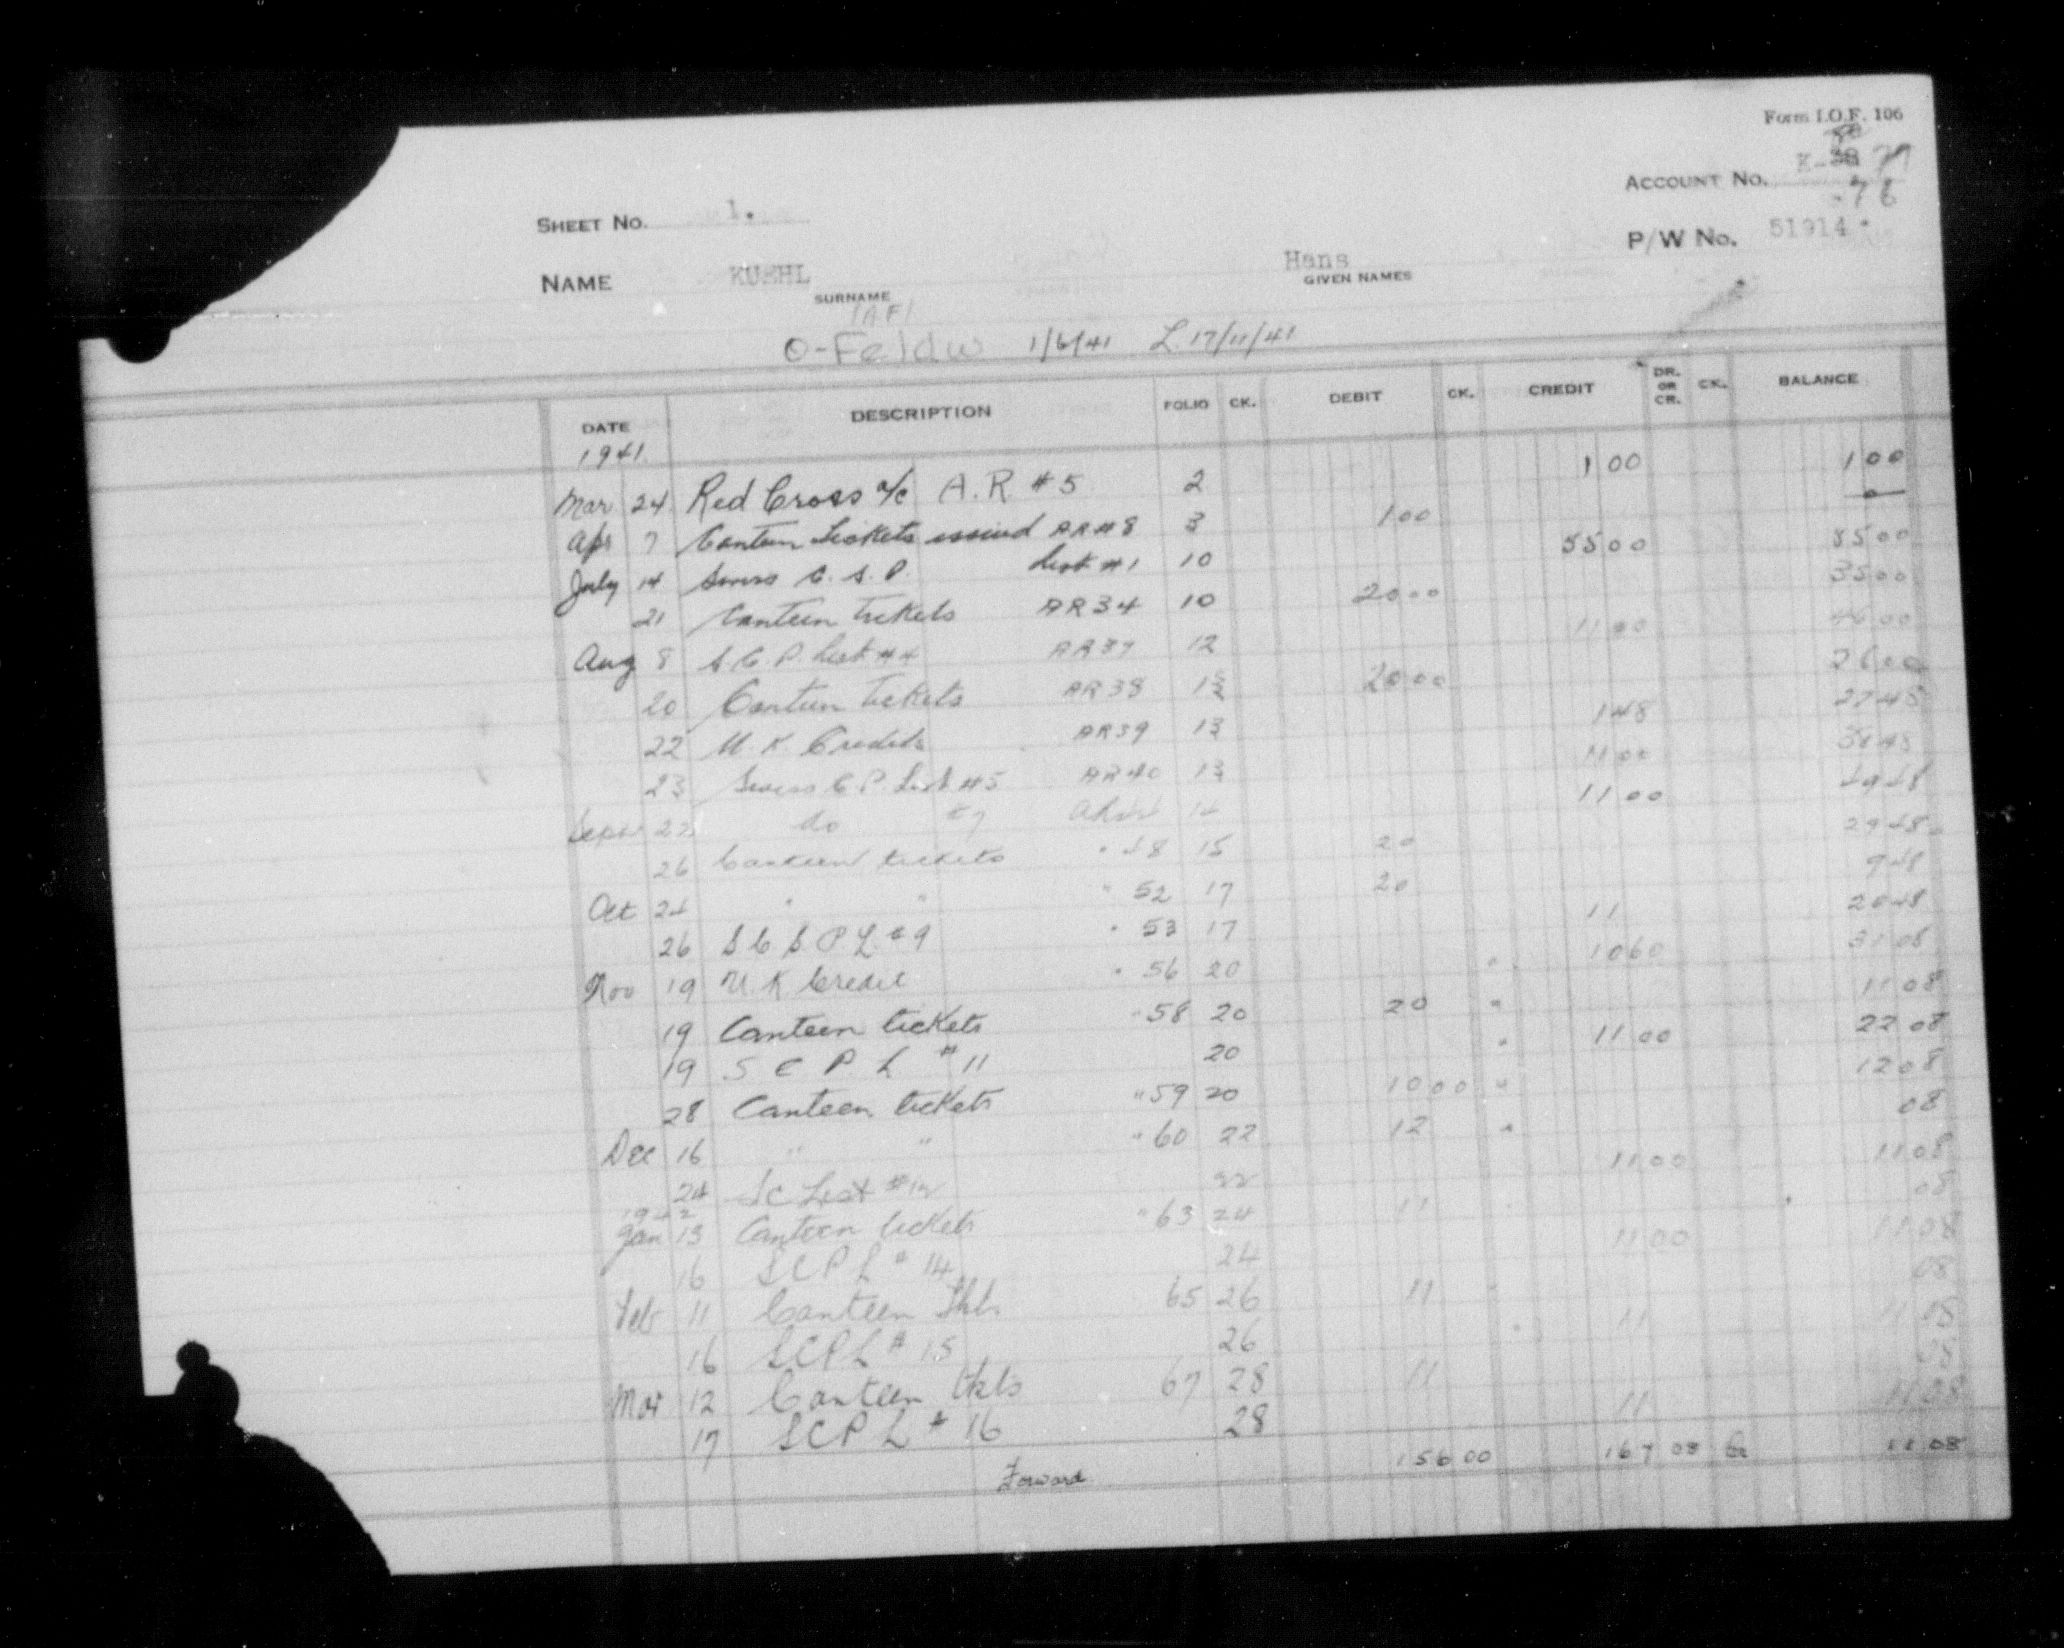 Form I.O.F. 106
SHEET No. 1. ACCOUNT No. K- 77
-78
P/W No. 51914
NAME KUEHL Hans
SURNAME GIVEN NAMES
(AF)
O-Feldw 1/6/41 L. 17/11/41
DATE DESCRIPTION FOLIO CK. DEBIT CK. CREDIT DR. OR CR. CK. BALANCE
1941
Mar 24 Red Cross a/c A.R #5 2 1 00 1 00
Apr 7 Canteen tickets issued AR#8 3 1 00 0
July 14 Swiss C.S.P. List #1 10 55 00 55 00
21 Canteen tickets AR34 10 20 00 35 00
Aug 8 S.C.P. List #4 AR37 12 11 00 46 00
20 Canteen tickets AR38 20 00 26 00
22 U.K. Credits AR39 13 1 48 27 48
23 Swiss C.P. List #5 AR40 13 11 00 38 48
Sept 22 do #7 14 11 00 49 48
26 Canteen tickets " 48 15 20 29 48
Oct 24 " " " 52 17 20 9 48
26 S C S P L #9 " 53 17 11 20 48
Nov 19 U.K Credit " 56 20 10 60 31 08
19 Canteen tickets " 58 20 20 " 11 08
19 S C P L #11 20 " 11 00 22 08
28 Canteen tickets " 59 20 10 00 " 12 08
Dec 16 " " " 60 22 12 " 08
24 SC List #12 22 11 00 11 08
1942
Jan 13 Canteen tickets " 63 24 11 08
16 SCPL #14 24 11 00 11 08
Feb 11 Canteen tkts 65 26 11 08
16 SCPL #15 26 11 11 08
Mar 12 Canteen tkts 67 28 11 08
17 SCPL #16 28 11 11 08
Forward 156 00 167 08 Cr 11 08